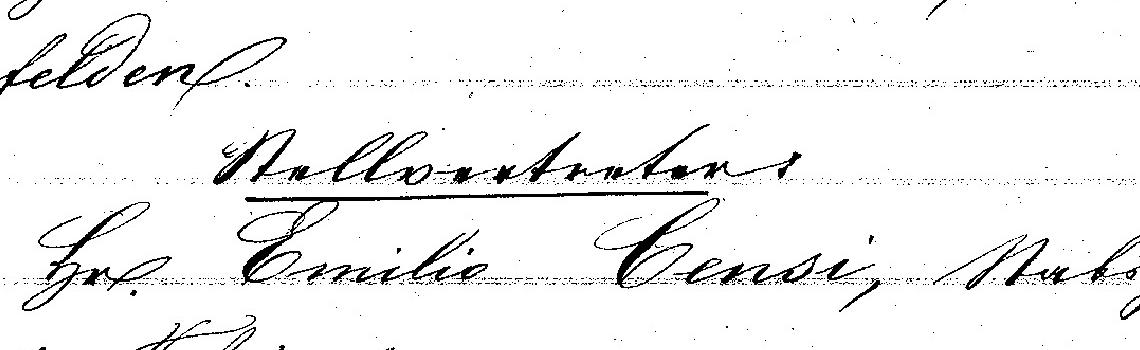 felden.
Stellvertreter:
Hr. Emilio Censi, Stabs